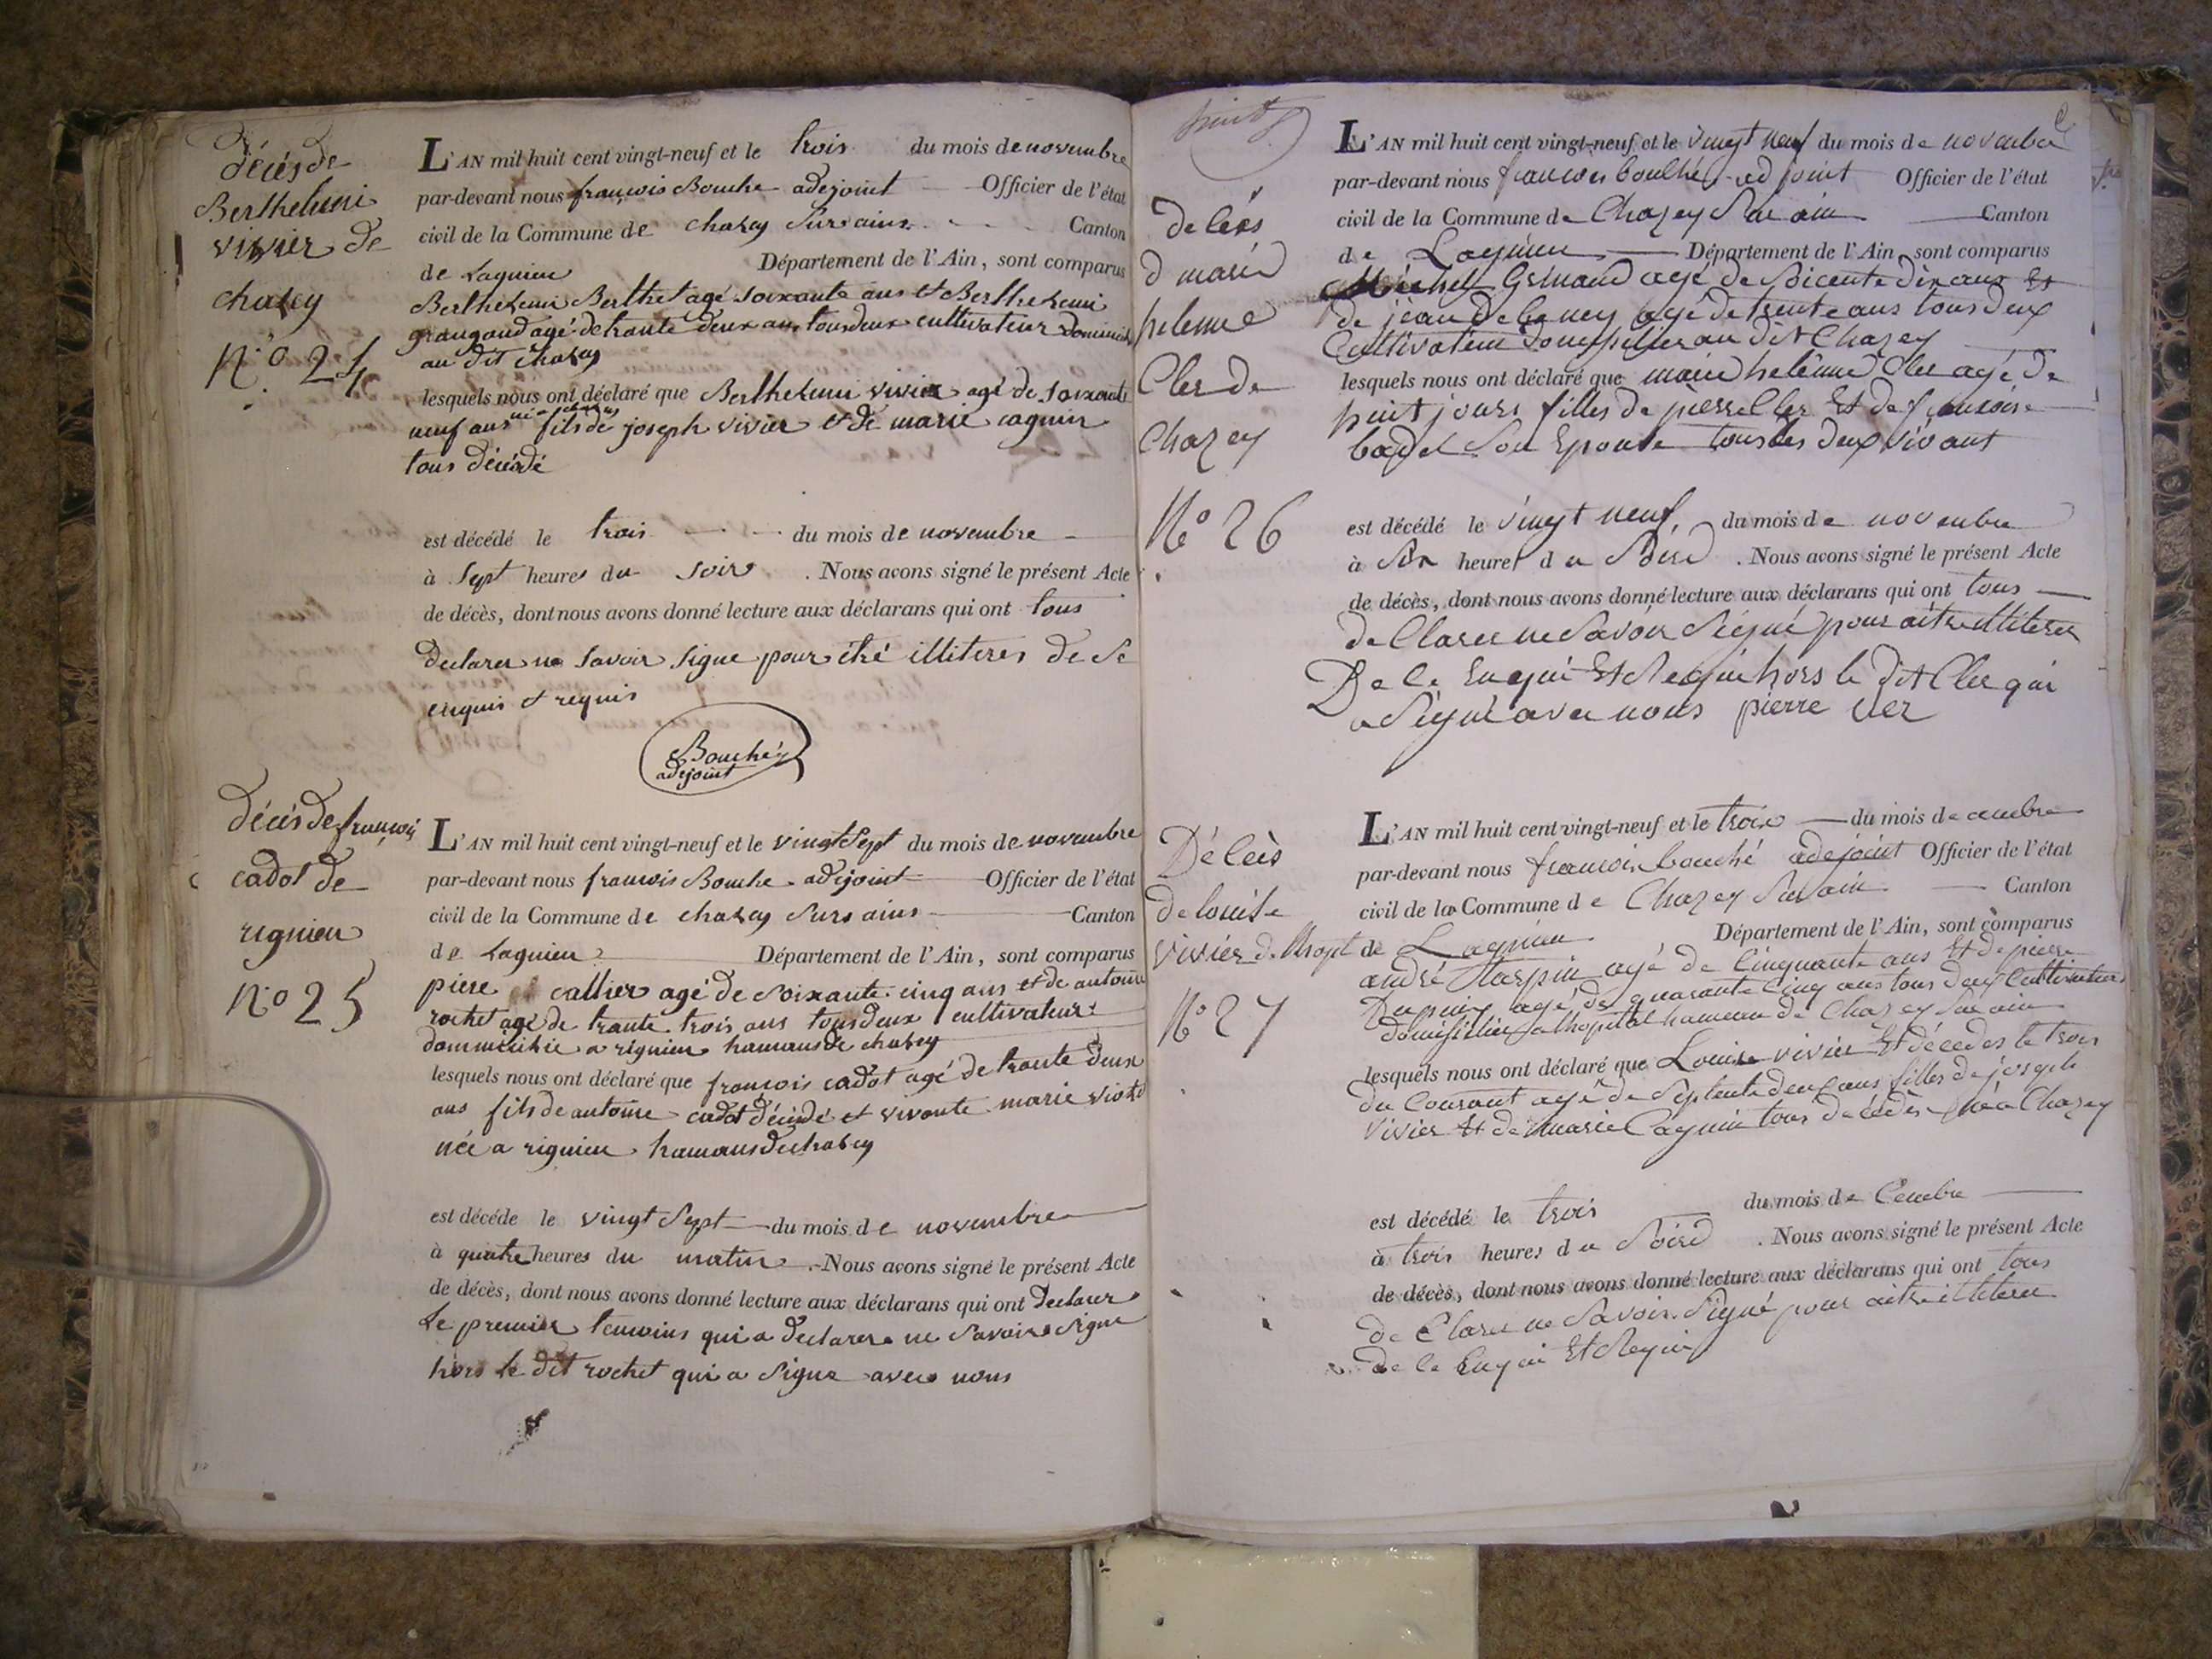 décés de
Berthelemi
vivier de
chazey
N.º 24
L'AN mil huit cent vingt-neuf et le trois du mois de novembre
par-devant nous francois Bouche adejoint Officier de l'état
civil de la Commune de chazey Sur ains Canton
de Lagnieu Département de l'Ain, sont comparus
Berthelemi Berthet agé soixante ans et Berthelemi
agé de trante deux ans tous deux cultivateur
au dit chazey
lesquels nous ont déclaré que Berthelemi vivier agé de soixante
neuf ans fils de joseph vivier et de marie cagnin
tous décédé
est décédé le trois du mois de novembre
à Sept heures du soir . Nous avons signé le présent Acte
de décès, dont nous avons donné lecture aux déclarans qui ont tous
declarer ne savoir signe pour étré illiteres de Ce
enquis et requis
Bouché
adejoint
décés de françois
cadot de
rignieu
N.º 25
L'AN mil huit cent vingt-neuf et le vingt Sept du mois de novembre
par-devant nous francois Bouche adejoint Officier de l'état
civil de la Commune de chazey Surs ains Canton
de Lagnieu Département de l'Ain, sont comparus
piere callier agé de soixante cinq ans et de antoine
rochet agé de trante trois ans tous deux cultivateur
a rignieu hamaus de chazey
lesquels nous ont déclaré que françois cadot agé de trante deux
ans fils de antoine cadot décédé et vivante marie
née a rignieu hamaus de chazey
est décédé le vingt Sept du mois de novembre
à quatre heures du matin . Nous avons signé le présent Acte
de décès, dont nous avons donné lecture aux déclarans qui ont declarer
Le premier temoins qui a declarer ne savoir signe
hors le dit rochet qui a signe avec nous
de Cés
d marie
helenne
Cler de
Chazey
Nº 26
L'AN mil huit cent vingt-neuf et le vingt neuf du mois de novembre
par-devant nous francois bouché ad joint Officier de l'état
civil de la Commune de Chazey Sur ain Canton
de Lagnieu Département de l'Ain, sont comparus
Michel agé de Soicente dix ans Et
de jean agé de trente ans tous deux
Cultivateur au dit Chazey
lesquels nous ont déclaré que marie helenne Cler agé de
huit jours filles de pierre Cler Et de francoise
badel Son Epouse tous les deux vivant
est décédé le vingt neuf du mois de novembre
à Six heures du Soire . Nous avons signé le présent Acte
de décès, dont nous avons donné lecture aux déclarans qui ont tous
de Clarer ne Savoir Signé pour aitre illiterer
De Ce Enquit Et Requi hors le dit Cler qui
a Signé avec nous pierre cler
Décès
de louise
vivier d. lhopt
Nº 27
L'AN mil huit cent vingt-neuf et le trois du mois de cembre
par-devant nous francois bouché adejoint Officier de l'état
civil de la Commune de Chazey Sur ain Canton
de Lagnieu Département de l'Ain, sont comparus
andré agé de Cinquante ans Et de pierre
Dupuis agé de quarante Cinq ans tous deux Cultivateur
a lhopital hameau de Chazey Sur ain
lesquels nous ont déclaré que Louise vivier Et décedes le trois
du Courant agé de Septente deux ans filles de joseph
vivier Et de marie Cagnin tous décédés née a Chazey
est décédé le trois du mois de Cembre
à trois heures du Soire . Nous avons signé le présent Acte
de décès, dont nous avons donné lecture aux déclarans qui ont tous
de Clarer ne Savoir Signé pour aitre illiterer
de Ce Enqui Et Requi